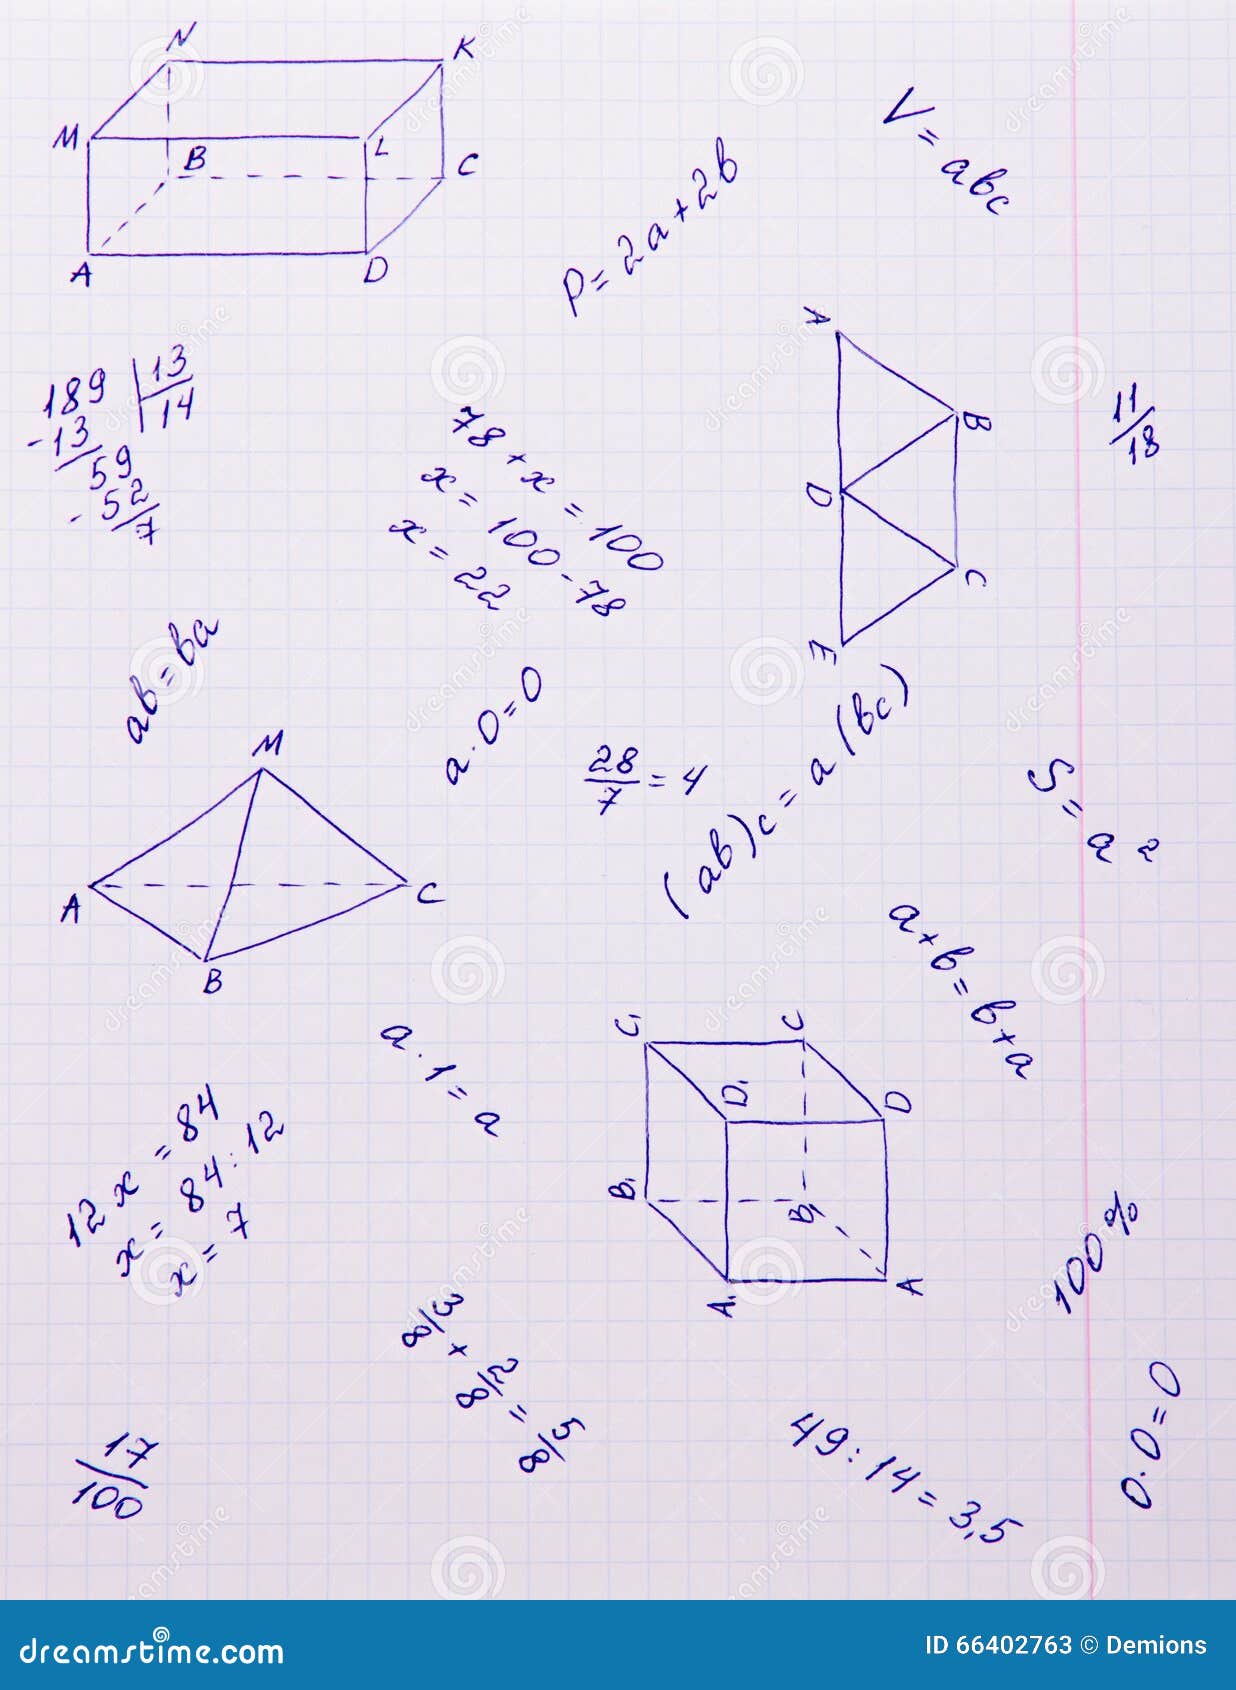 N
K
M
L
B
C
A
D
V = abc
P = 2a + 2b
189 | 13
-13 14
59
- 52
7
78 + x = 100
x = 100 - 78
x = 22
A
B
O
C
E
11/18
ab = ba
a · 0 = 0
28/7 = 4
(ab)c = a(bc)
S = a²
M
A
C
B
a + b = b + a
a · 1 = a
C₁
C
D₁
D
B₁
B
A₁
A
12x = 84
x = 84 : 12
x = 7
100%
3/8 + 2/8 = 5/8
49 : 14 = 3,5
0 · 0 = 0
17/100
dreamstime.com
ID 66402763 © Demions